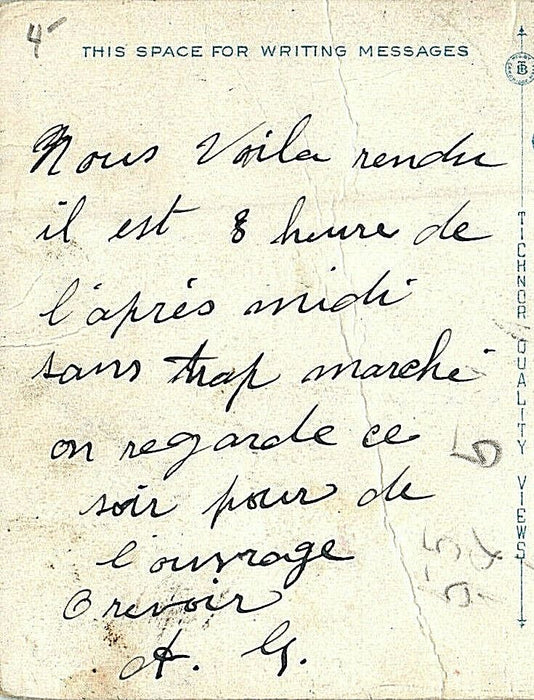 4
THIS SPACE FOR WRITING MESSAGES
Nous Voila rendu
il est 8 heure de
l'après midi
sans trop marché
on regarde ce
soir pour de
l'ouvrage
O revoir
A. G.
TICHNOR QUALITY VIEWS
5